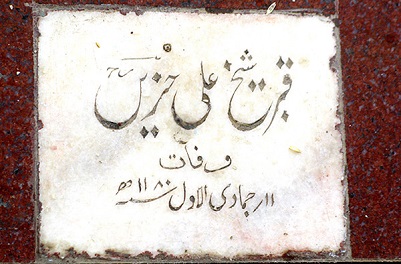 قبر شیخ علی حزیں
وفات
۱۱؍ جمادی الاول ۱۱۸۰ھ